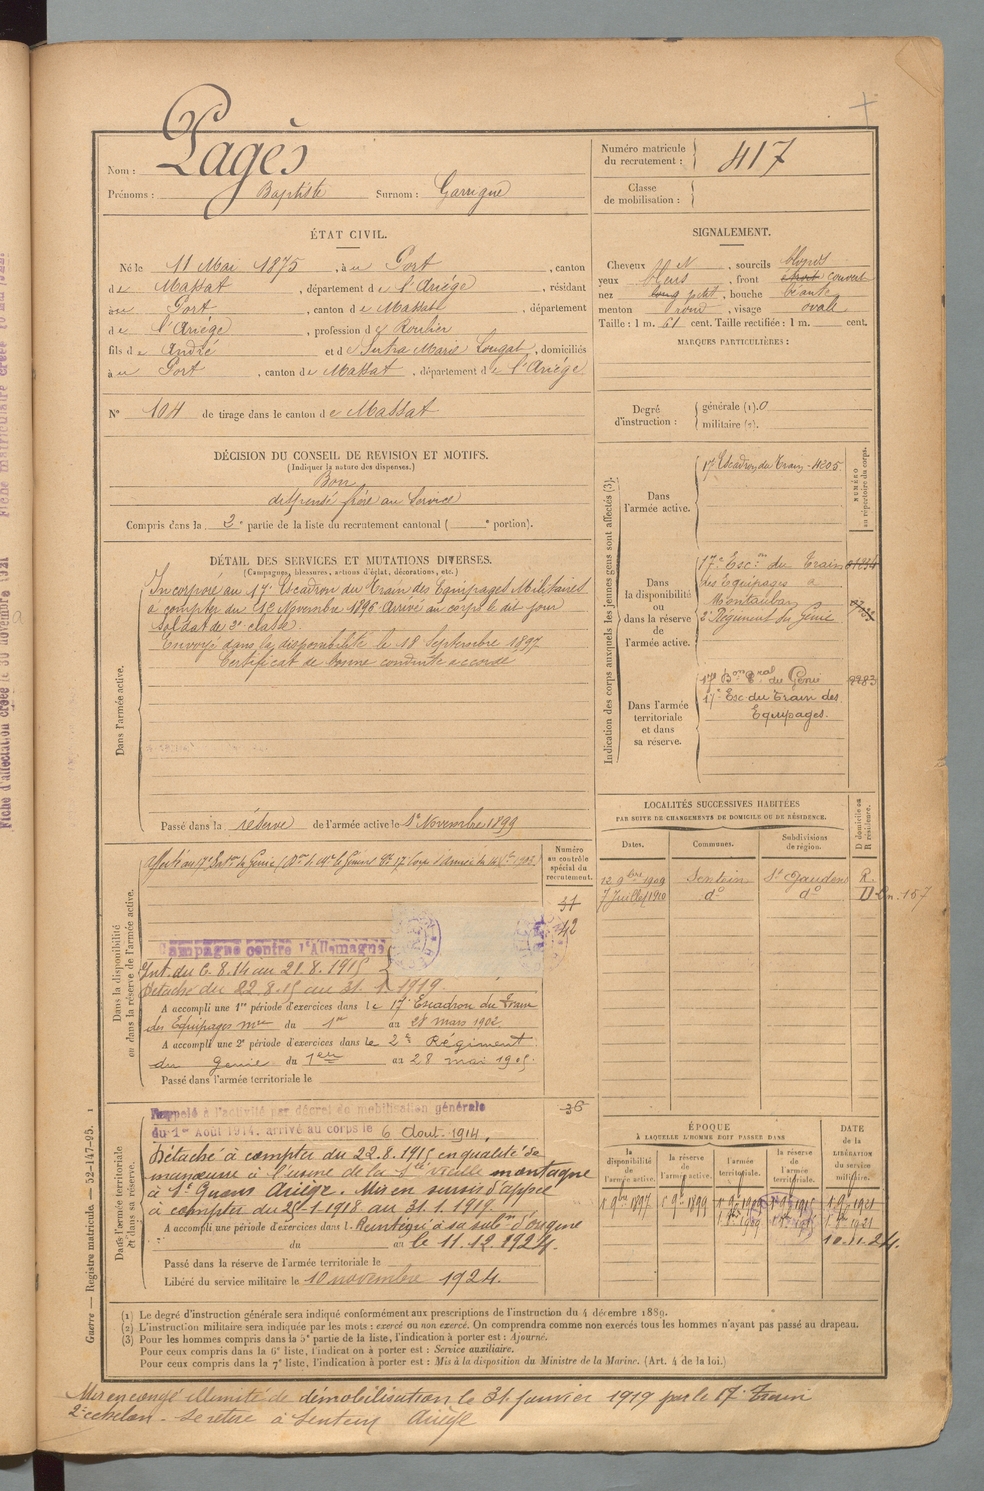 Pagès
Nom :
Prénoms : Baptiste Surnom : Garrigue
Numéro matricule du recrutement : 417
Classe de mobilisation :
ÉTAT CIVIL.
Né le 11 Mai 1875, à Port, canton
de Massat, département de l'Ariège, résidant
à Port, canton de Massat, département
de l'Ariège, profession de Roulier
fils de André et de Sutra Marie Lougat, domiciliés
à Port, canton de Massat, département de l'Ariège
N° 104 de tirage dans le canton de Massat
SIGNALEMENT.
Cheveux, sourcils blonds
yeux bleus, front couvert
nez long petit, bouche béante
menton rond, visage ovale
Taille : 1 m. 61 cent. Taille rectifiée : 1 m. cent.
MARQUES PARTICULIÈRES :
Degré d'instruction : générale (1). 0
militaire (2).
DÉCISION DU CONSEIL DE REVISION ET MOTIFS.
(Indiquer la nature des dispenses.)
Bon
dispensé frère au service
Compris dans la 2e partie de la liste du recrutement cantonal ( e portion).
DÉTAIL DES SERVICES ET MUTATIONS DIVERSES.
(Campagnes, blessures, actions d'éclat, décorations, etc.)
Dans l'armée active.
Incorporé au 17e Escadron du Train des Equipages Militaires
à compter du 12 Novembre 1896 Arrivé au corps le dit jour
soldat de 2e classe.
Envoyé dans la disponibilité le 18 Septembre 1897
Certificat de bonne conduite accordé
Passé dans la réserve de l'armée active le 1er Novembre 1899
Indication des corps auxquels les jeunes gens sont affectés (3).
NUMÉRO au répertoire du corps.
Dans l'armée active.
17e Escadron du Train - 4205
Dans la disponibilité ou dans la réserve de l'armée active.
17e Escon du Train
des Equipages à
Montauban
2e Régiment du Génie
Dans l'armée territoriale et dans sa réserve.
17e Bon Cral du Génie 9983
17e Esc du Train des
Equipages.
LOCALITÉS SUCCESSIVES HABITÉES
PAR SUITE DE CHANGEMENTS DE DOMICILE OU DE RÉSIDENCE.
D domicile ou R résidence.
Dates. Communes. Subdivisions de région.
12 9bre 1909 Sentein St Gaudens R.
7 Juillet 1910 do do D
Dans la disponibilité ou dans la réserve de l'armée active.
Numéro au contrôle spécial du recrutement.
51
42
Campagne contre l'Allemagne
Int. du 6.8.14 au 21.8.1915
Détaché du 22.8.15 au 31.1.1919.
A accompli une 1re période d'exercices dans le 17e Escadron du Train
des Equipages mres du 1er au 28 mars 1902
A accompli une 2e période d'exercices dans le 2e Régiment
du Génie du 1er au 28 mai 1905.
Passé dans l'armée territoriale le
36
Dans l'armée territoriale et dans sa réserve.
Rappelé à l'activité par décret de mobilisation générale
du 1er Août 1914, arrivé au corps le 6 Aout 1914,
Détaché à compter du 22.8.1915 en qualité de
manœuvre à l'usine de la Sté vieille montagne
à St Girons Ariège. Mis en sursis d'appel
à compter du 25-1-1918 au 31.1.1919.
A accompli une période d'exercices dans l Réintégré à sa subon d'origine
du au le 11.12.1924.
Passé dans la réserve de l'armée territoriale le
Libéré du service militaire le 10 novembre 1924.
ÉPOQUE
À LAQUELLE L'HOMME DOIT PASSER DANS
DATE de la LIBÉRATION du service militaire.
la disponibilité de l'armée active. la réserve de l'armée active. l'armée territoriale. la réserve de l'armée territoriale.
1 9bre 1897 1 9bre 1899 1 9bre 1909 1 9bre 1915 1 9bre 1921
10.11.24.
(1) Le degré d'instruction générale sera indiqué conformément aux prescriptions de l'instruction du 4 décembre 1889.
(2) L'instruction militaire sera indiquée par les mots : exercé ou non exercé. On comprendra comme non exercés tous les hommes n'ayant pas passé au drapeau.
(3) Pour les hommes compris dans la 5e partie de la liste, l'indication à porter est : Ajourné.
Pour ceux compris dans la 6e liste, l'indication à porter est : Service auxiliaire.
Pour ceux compris dans la 7e liste, l'indication à porter est : Mis à la disposition du Ministre de la Marine. (Art. 4 de la loi.)
Mis en congé illimité de démobilisation le 31 Janvier 1919 par le 17e Train
2e échelon - se retire à Sentein Ariège
Guerre — Registre matricule. — 52-147-95. 1
Fiche d'affectation créée le 30 novembre 1921